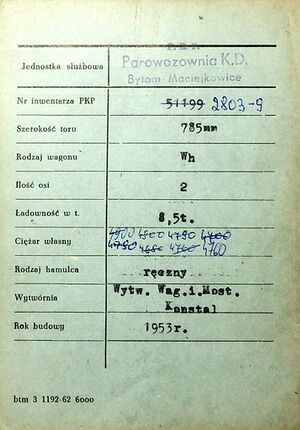 P.K.P.
Jednostka służbowa Parowozownia K.D.
Bytom Maciejkowice
Nr inwentarza PKP 51199 2803-9
Szerokość toru 785mm
Rodzaj wagonu Wh
Ilość osi 2
Ładowność w t. 8,5t.
Ciężar własny 4900 4800 4790 4700
4750 4680 4760 4760
Rodzaj hamulca ręczny
Wytwórnia Wytw. Wag.i.Most.
Konstal
Rok budowy 1953r.
btm 3 1192-62 6000